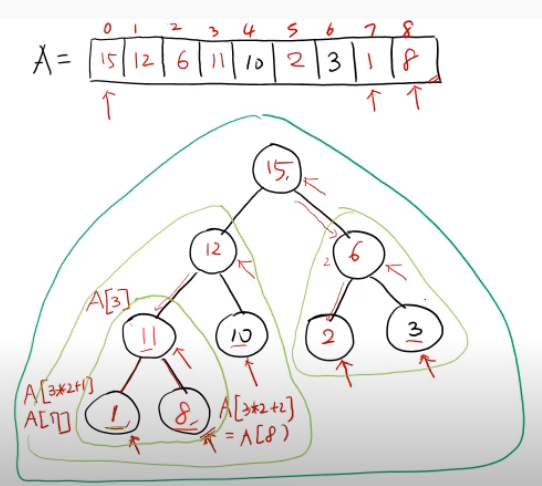 0 1 2 3 4 5 6 7 8
A = 15 12 6 11 10 2 3 1 8
15
12 6
2
A[3]
11 10 2 3
A[3*2+1]
A[7] 1 8 A[3*2+2]
= A[8)